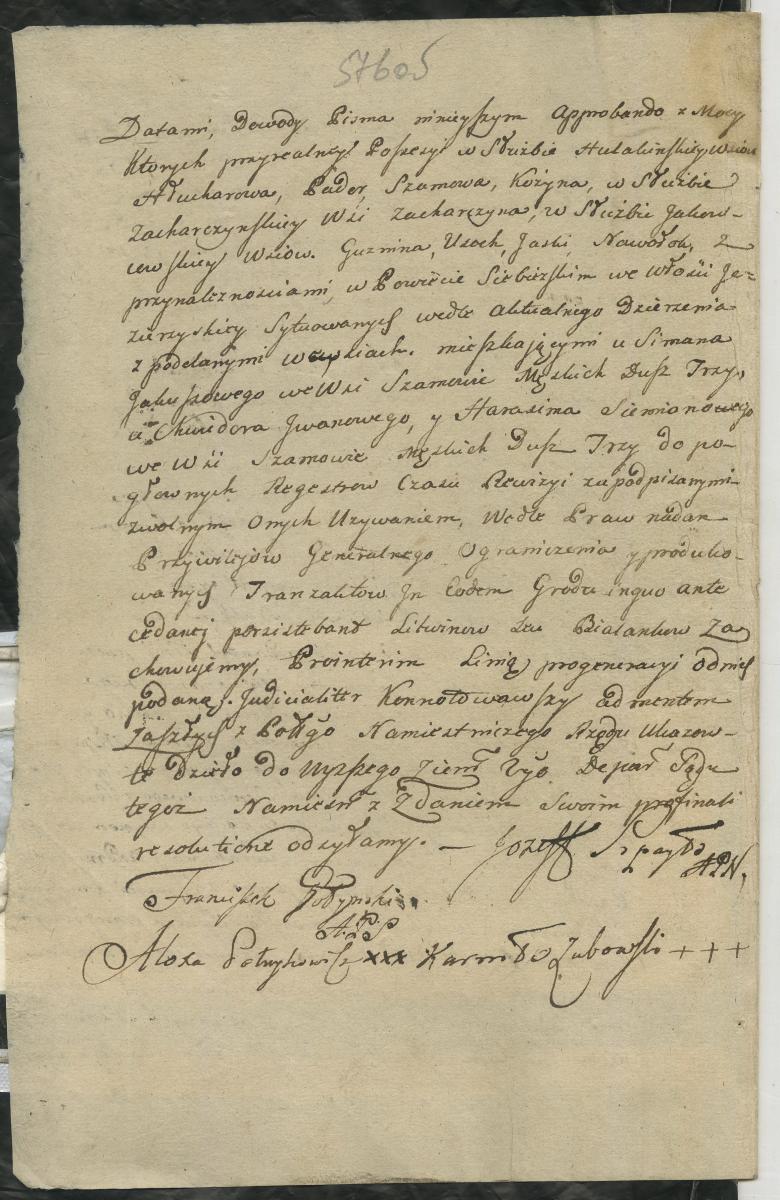 57605
Datami, Dowody Pisma ninieyszym Approbando z Mocy
Ktorych przyrealney Possesyi w Służbie
Hłucharowa, Pador, Szamowa, Kożyna, w Służbie
Zacharczynskiey Wsi Zacharczyna, w Służbie Jakow-
lewskiey Wsiow. Guznina, Usoch, Jaski, Nawołok, Z
przynaleznosciami, w Powiecie Siebieżskim we Włosći Je=
zierzyskiey Sytuowanych wedle Aktualnego Dzierzenia
z poddanymi w Wsiach. mieszkającymi u Simana
we Wsi Szamowie Męskich Dusz Trzy,
a Chwidora Jwanowego, y Harasima Siemionowego
we Wsi Szamowie Męskich Dusz Trzy do po-
głownych Regestrow Czasu Rewizyi zapodpisanymi
zwolnym Onych Uzywaniem, Wedle Praw nadan
Przywilejow Generalnego Ograniczenia y produko-
wanych Tranzaktow Jn Eodem Gradu inquo ante
cedanej Litwinow seu Białankow Za
chowujemy, Prointerim Linią progeneracyi Odnich
podaną. Judicialiter Konnotowawszy ad mentem
Zaszłych z Połłgo Namiestniczego Rządu Ukazow-
te Dzieło do Wyższego Ziem Departt Sądu
tegoż Namiest z Zdaniem Swoim pro finali
resolutione odsyłamy. — Jozeff
Franciszek
Aloza xxx Karm Zubowski +++